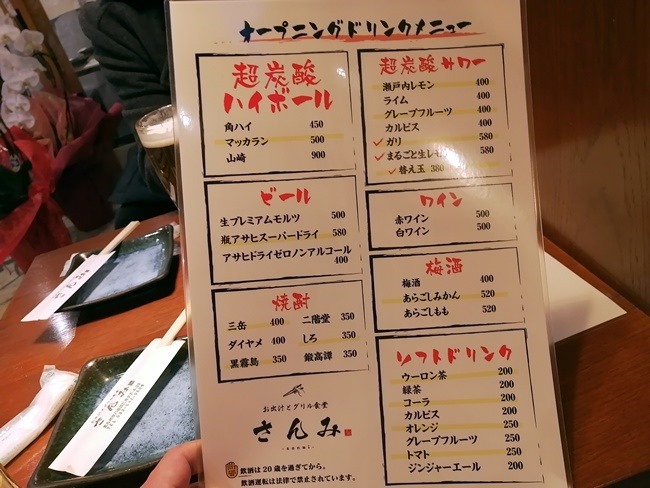 オープニングドリンクメニュー
超炭酸
ハイボール
角ハイ 450
マッカラン 500
山崎 900
ビール
生プレミアムモルツ 500
瓶アサヒスーパードライ 580
アサヒドライゼロノンアルコール
400
焼酎
三岳 400 二階堂 350
ダイヤメ 400 しろ 350
黒霧島 350 鍛高譚 350
お出汁とグリル食堂
さんみ
飲酒は20歳を過ぎてから。
飲酒運転は法律で禁止されています。
超炭酸サワー
瀬戸内レモン 400
ライム 400
グレープフルーツ 400
カルピス 400
ガリ 580
まるごと生レモン 580
替え玉 380
ワイン
赤ワイン 500
白ワイン 500
梅酒
梅酒 400
あらごしみかん 520
あらごしもも 520
ソフトドリンク
ウーロン茶 200
緑茶 200
コーラ 200
カルピス 200
オレンジ 250
グレープフルーツ 250
トマト 250
ジンジャーエール 200